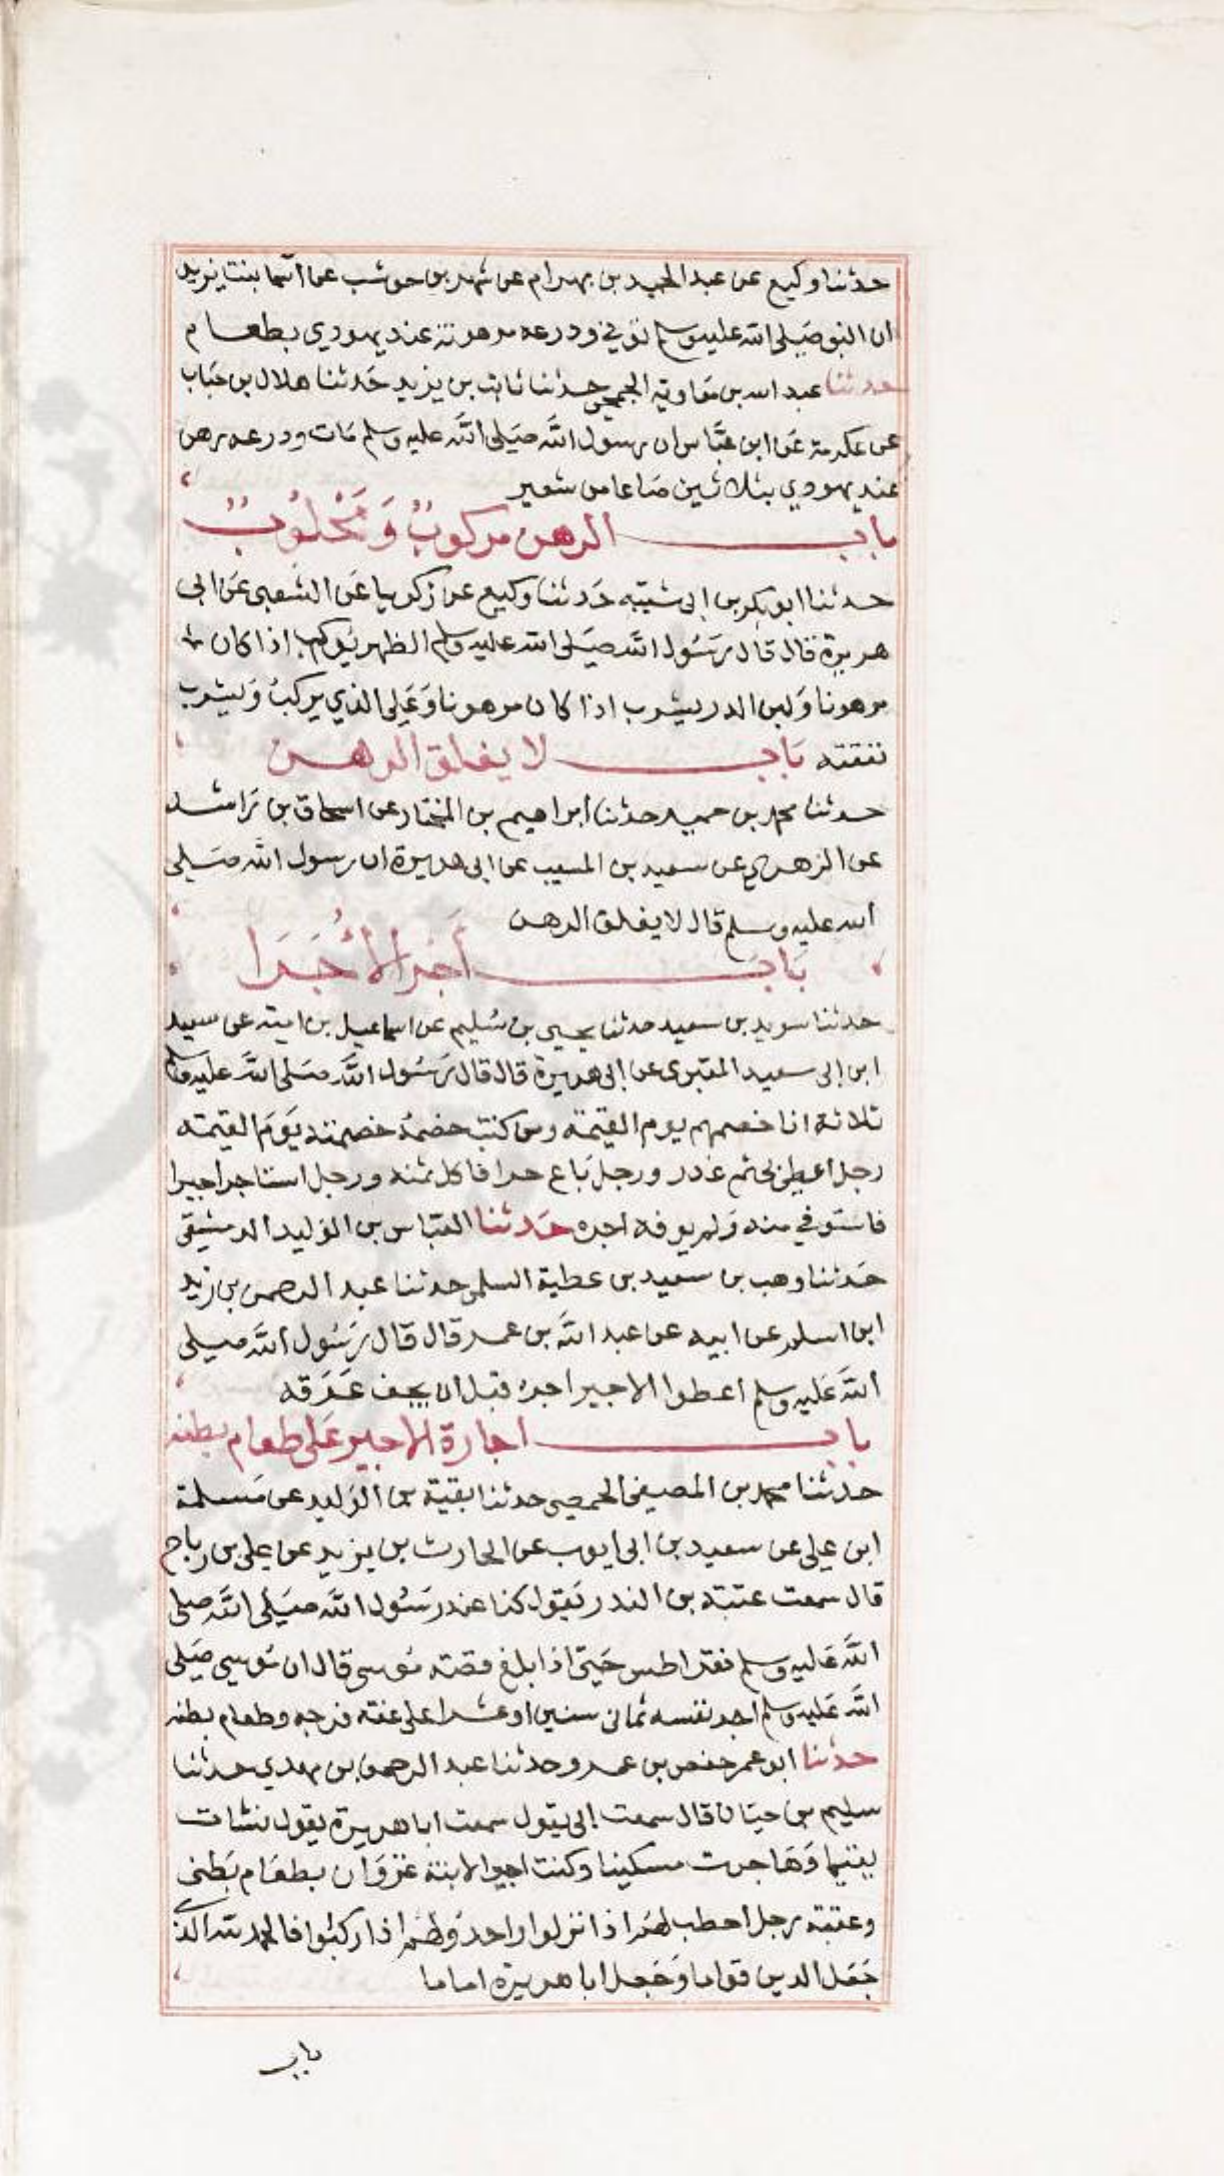 حدثنا وكيع عن عبد الحميد بن بهرام عن شهر بن حوشب عن اسما بنت يزيد
ان النبي صلى الله عليه وسلم توفي ودرعه مرهونة عند يهودي بطعام
حدثنا عبد الله بن معاوية الجمحي حدثنا ثابت بن يزيد حدثنا هلال بن خباب
عن عكرمة عن ابن عباس ان رسول الله صلى الله عليه وسلم مات ودرعه رهن
عند يهودي بثلاثين صاعا من شعير
باب الرهن مركوب ومحلوب
حدثنا ابو بكر بن ابي شيبه حدثنا وكيع عن زكريا عن الشعبي عن ابي
هريرة قال قال رسول الله صلى الله عليه وسلم الظهر يركب اذا كان
مرهونا ولبن الدر يشرب اذا كان مرهونا وعلى الذي يركب ويشرب
نفقته باب لا يغلق الرهن
حدثنا محمد بن حميد حدثنا ابراهيم بن المختار عن اسحاق بن راشد
عن الزهري عن سعيد بن المسيب عن ابي هريرة ان رسول الله صلى
الله عليه وسلم قال لا يغلق الرهن
باب اجر الأجرا
حدثنا سويد بن سعيد حدثنا يحيى بن سليم عن اسماعيل بن امية عن سعيد
ابن ابي سعيد المقبري عن ابي هريرة قال قال رسول الله صلى الله عليه وسلم
ثلاثة انا خصمهم يوم القيمة ومن كنت خصمه خصمته يوم القيمته
رجل اعطى بي ثم غدر ورجل باع حرا فاكل ثمنه ورجل استاجر اجيرا
فاستوفي منه ولم يوفه اجره حدثنا العباس بن الوليد الدمشيقي
حدثنا وهب بن سعيد بن عطية السلمي حدثنا عبد الرحمن بن زيد
ابن اسلم عن ابيه عن عبد الله بن عمر قال قال رسول الله صلى
الله عليه وسلم اعطوا الاجير اجره قبل ان يجف عرقه
باب اجارة الاجير على طعام بطنه
حدثنا محمد بن المصيفى الحمصي حدثنا بقية بن الوليد عن مسلمة
ابن علي عن سعيد بن ابي ايوب عن الحارث بن يزيد عن علي بن رباح
قال سمعت عتبة بن الندر يقول كنا عند رسول الله صلى الله صلى
الله عليه وسلم فقرا طس حتى اذا بلغ قصته موسى قال ان موسي صلى
الله عليه وسلم اجر نفسه ثماني سنين او عشرا على عفة فرجه وطعام بطنه
حدثنا ابو عمر حفص بن عمرو حدثنا عبد الرحمن بن مهدي حدثنا
سليم بن حيان قال سمعت ابي يقول سمعت ابا هريرة يقول نشات
يتيما وهاجرت مسكينا وكنت اجيرا لابنة غزوان بطعام بطني
وعقبة رجل احطب لهم اذا نزلوا واحدو لهم اذا ركبوا فالحمد لله الذي
جعل الدين قواما وجعل ابا هريرة اماما
باب